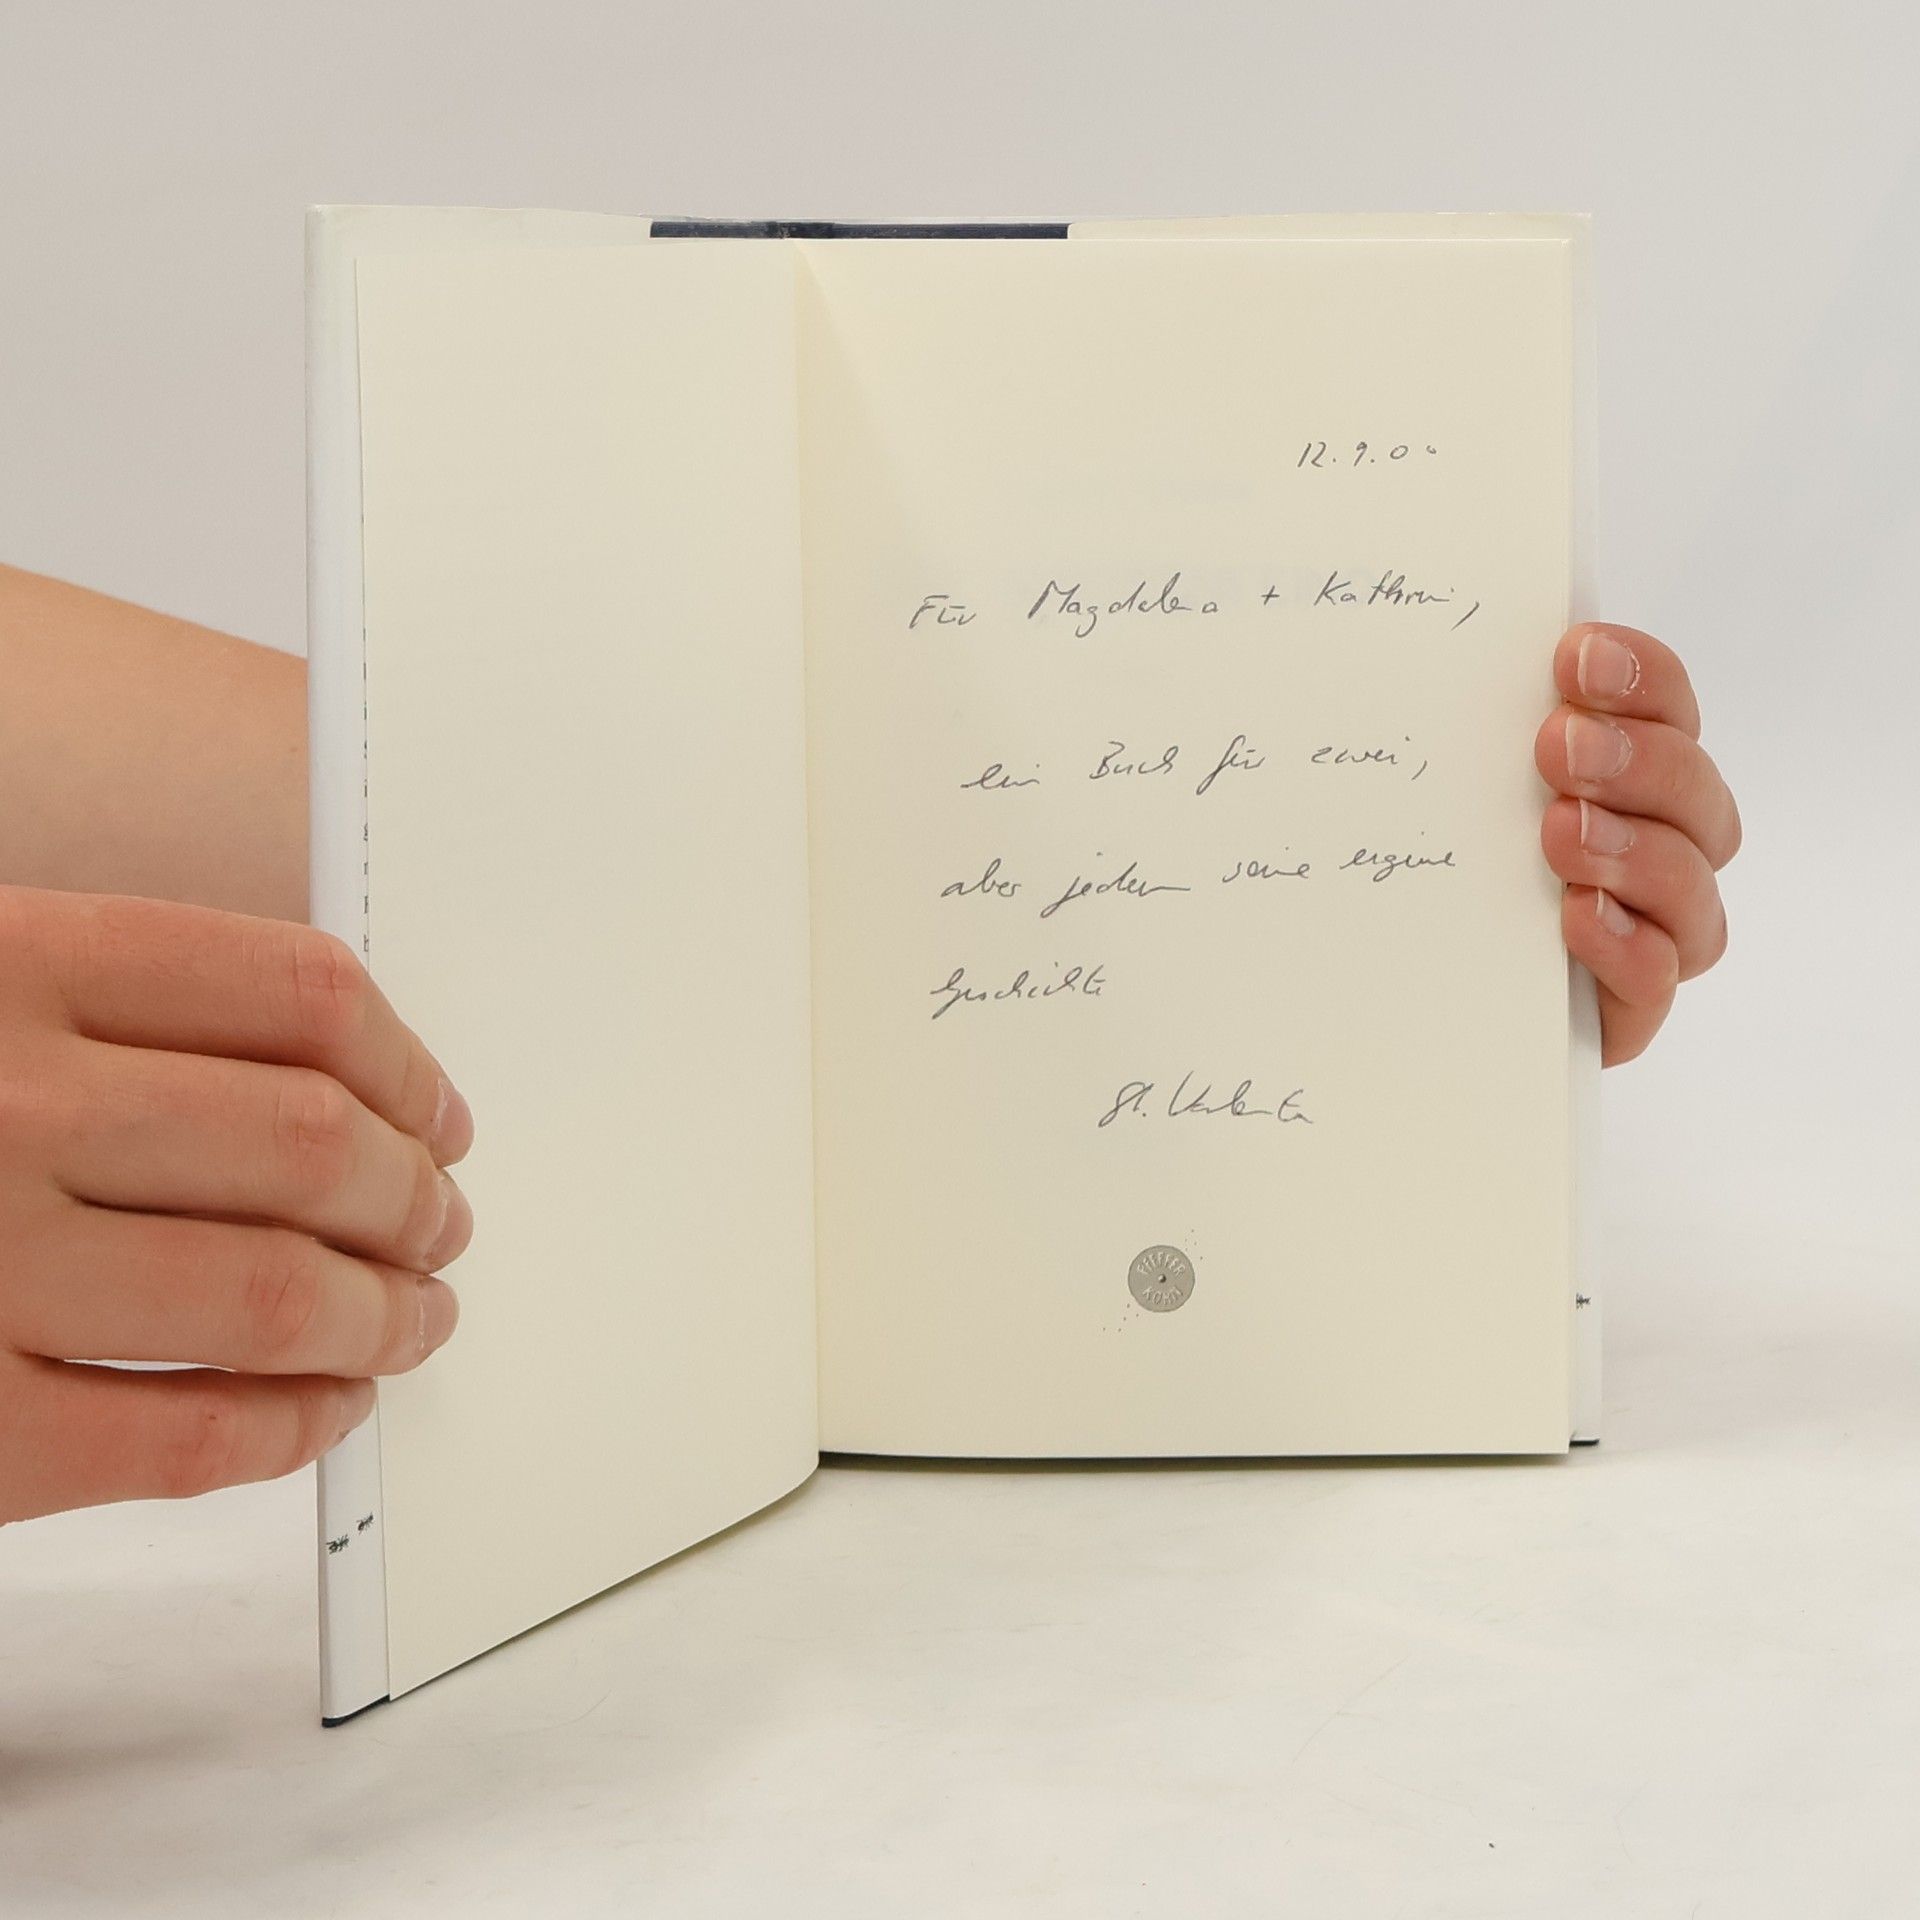 12.9.00
Für Magdalena + Kathrin,
ein Buch für zwei,
aber jedem seine eigene
Geschichte
St. Valentin
PFEFFER
KORN